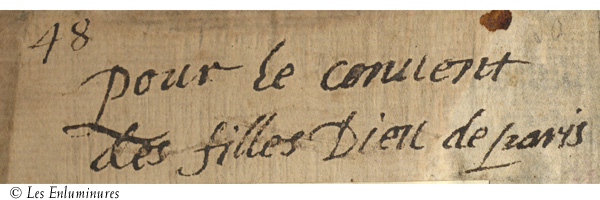 48
pour le conuent
des filles Dieu de paris
© Les Enluminures